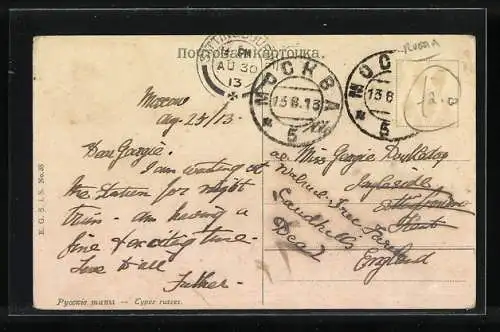 Почтовая карточка.
RUSSIA
SITTINGBOURNE
AU 30
13
МОСКВА
13 8 13
5
МОС
13 8
5
12.0
Moscow
Aug. 25/13.
Dear Georgie.
I am waiting at
the station for night
train - am having a
fine & exciting time -
Love to all
Father.
Miss Georgie
Ingleside
Kent
Walnut Tree Farm
Sandhills
Deal
England
E. G. S. I. S. No. 38
Русскіе типы — Types russes.